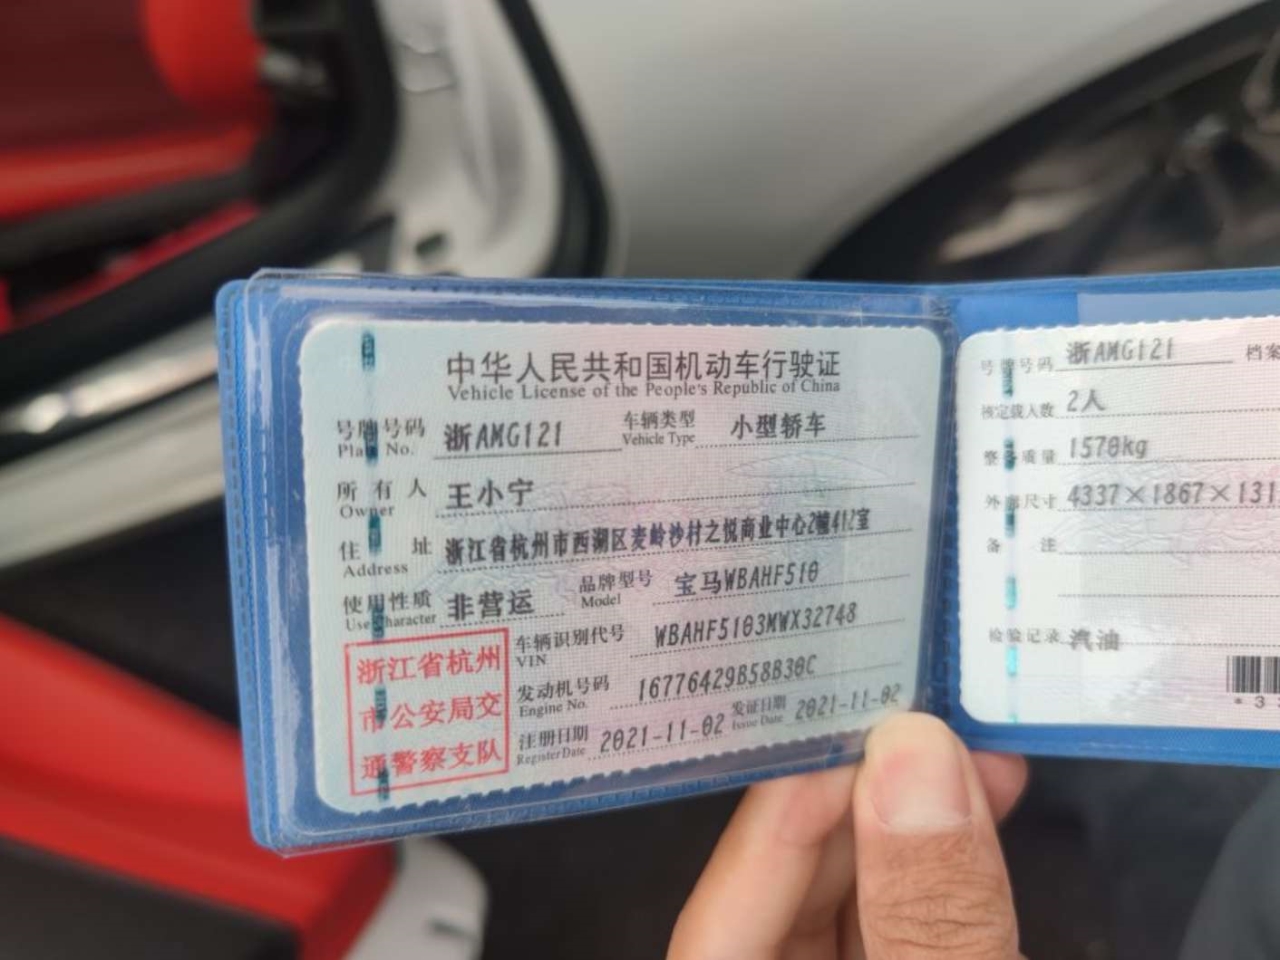 中华人民共和国机动车行驶证
Vehicle License of the People's Republic of China
号牌号码 浙AMG121 车辆类型 小型轿车
Plate No. Vehicle Type
所有人 王小宁
Owner
住址 浙江省杭州市西湖区麦岭沙村之悦商业中心2幢412室
Address
使用性质 非营运 品牌型号 宝马WBAHF510
Use Character Model
车辆识别代号 WBAHF5103MWX32748
VIN
发动机号码 16776429B58B30C
Engine No.
注册日期 2021-11-02 发证日期 2021-11-02
Register Date Issue Date
浙江省杭州
市公安局交
通警察支队
号牌号码 浙AMG121 档案
核定载人数 2人
整备质量 1570kg
外廓尺寸 4337×1867×131
备注
检验记录 汽油